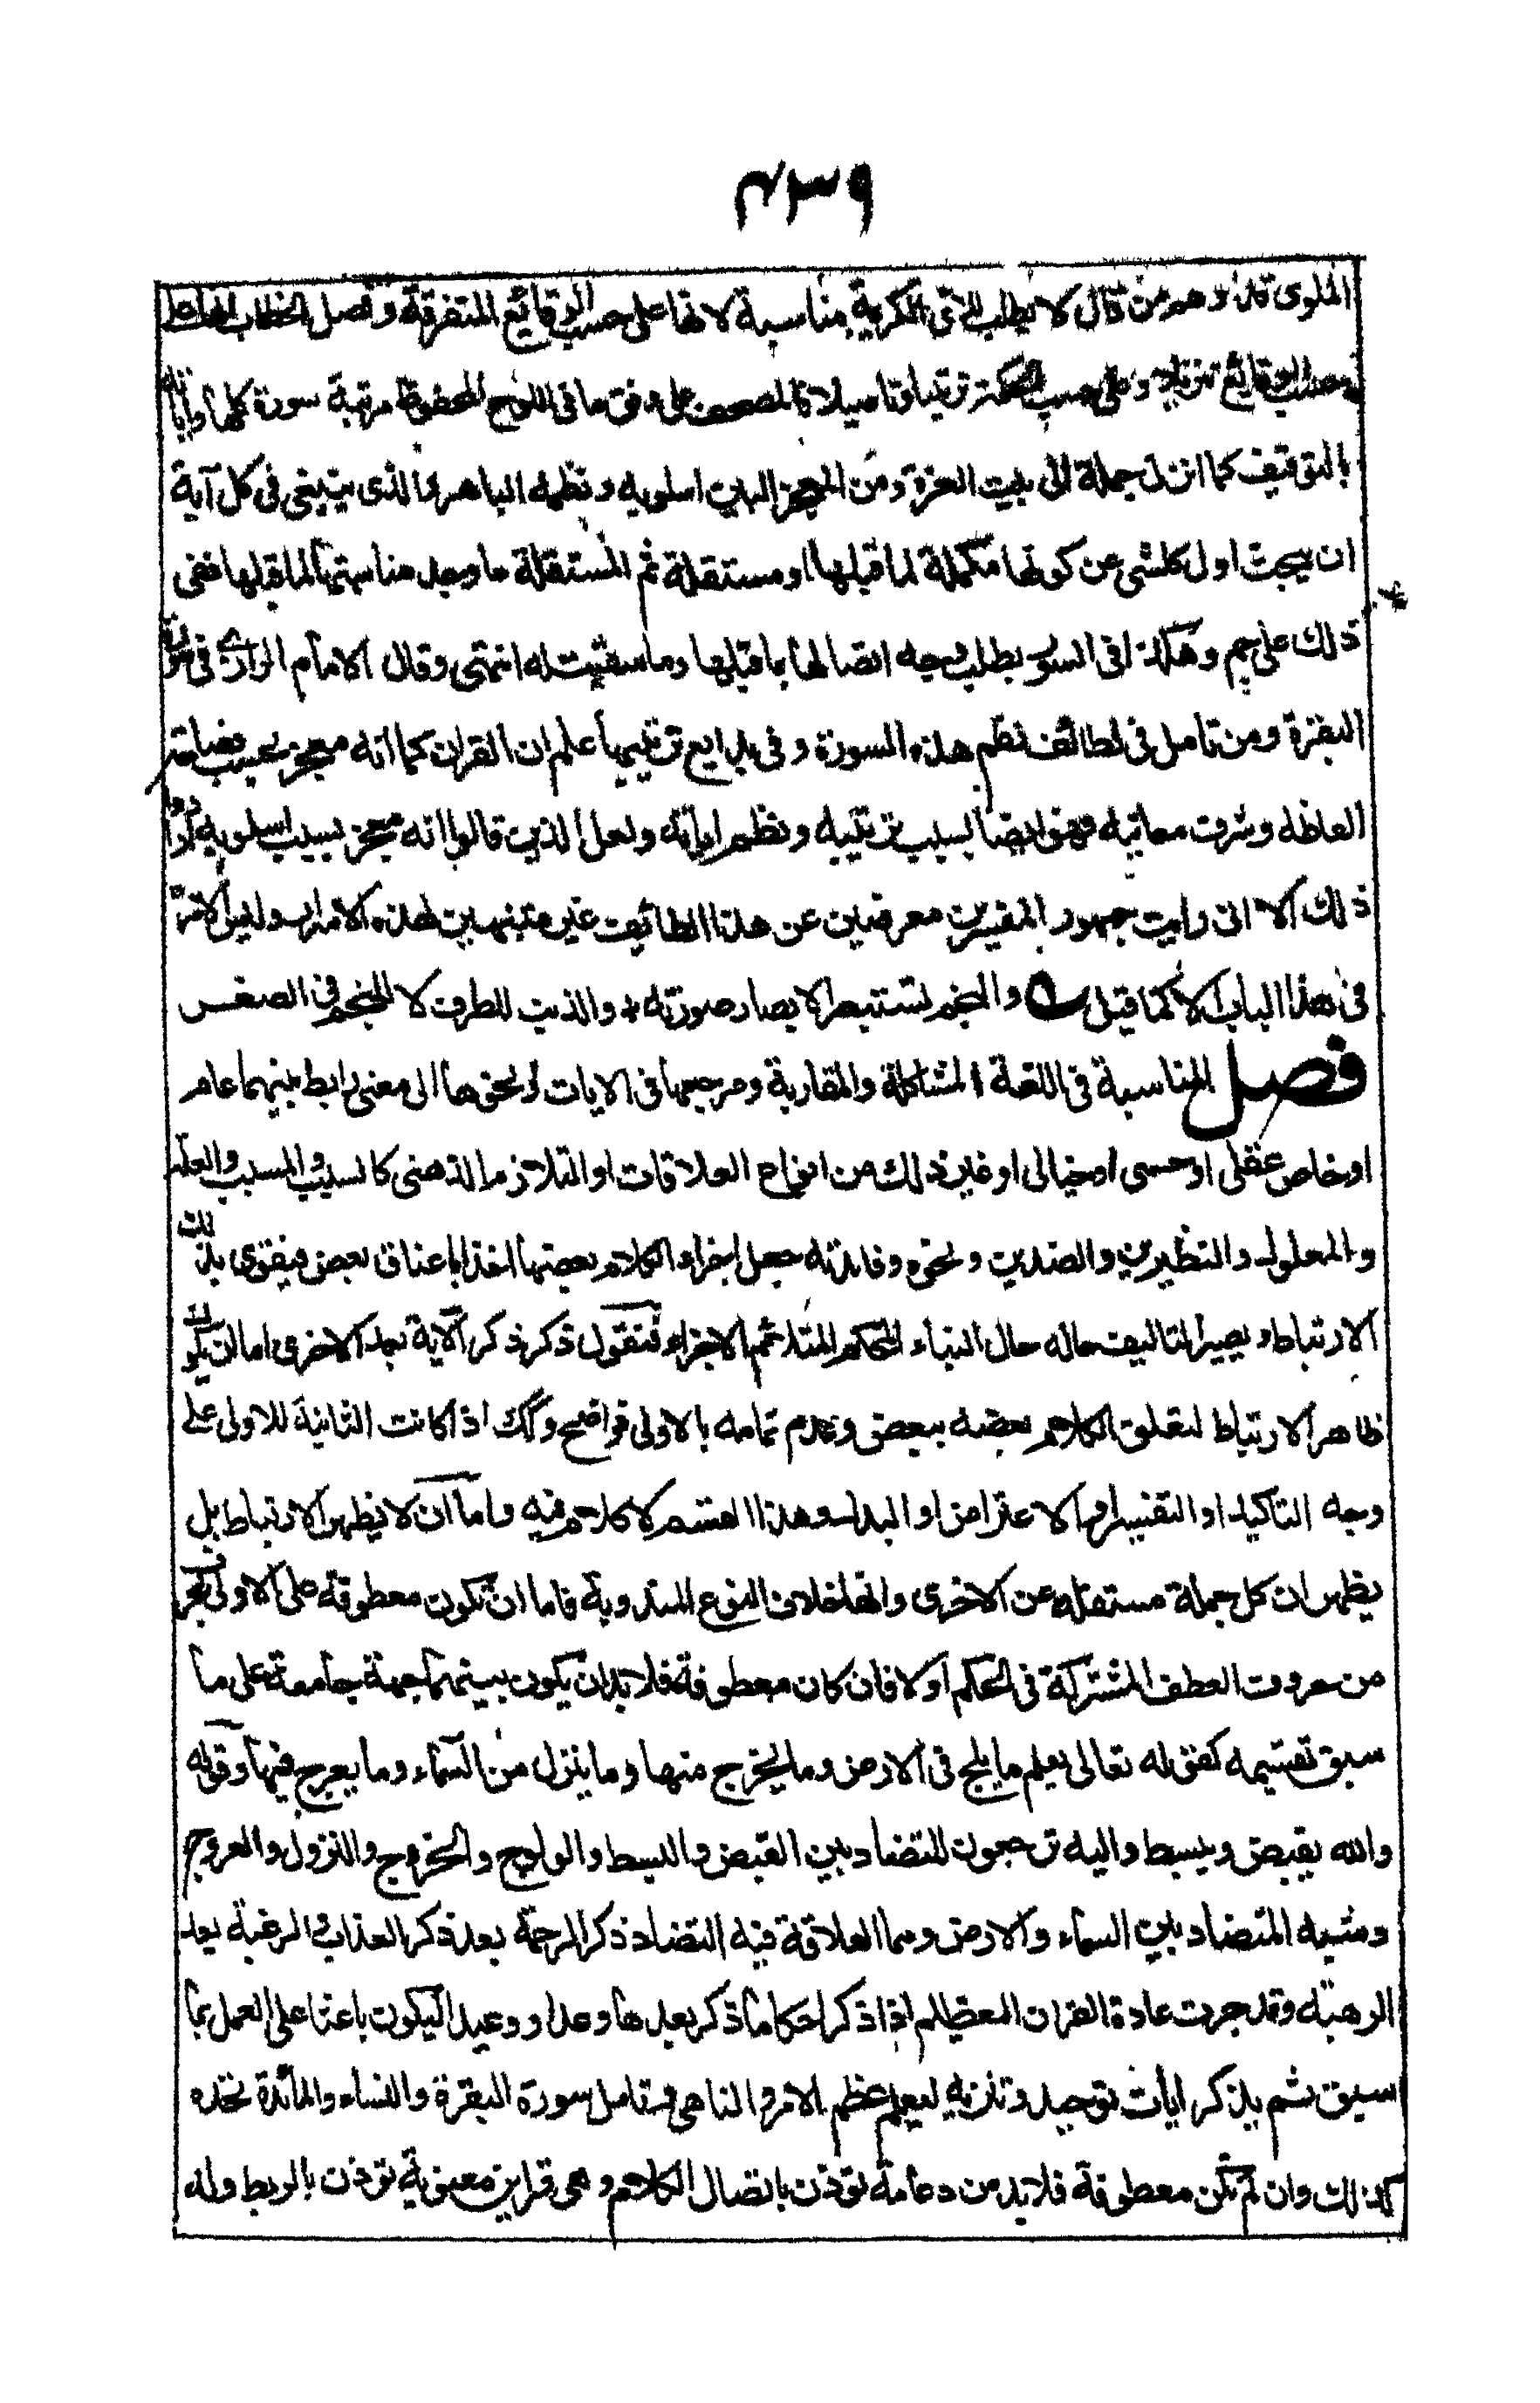 ٤٣٩
الملوى قد وهم من قال لا يطلب للآى الكريمة مناسبة لانها على حسب الوقائع المتفرقة وفصل الخطاب انها على
حسب الوقائع تنزيلا وعلى حسب الحكمة ترتيبا وتاصيلا فالمصحف على وفق ما فى اللوح المحفوظ مرتبة سورة كلها واياته
بالتوقيف كما انزل جملة الى بيت العزة ومن المعجز البين اسلوبه ونظمه الباهر والذى ينبغى فى كل آية
ان يبحث اول كلشى عن كونها مكملة لما قبلها او مستقلة ثم المستقلة ما وجه مناسبتها لما قبلها ففى
ذلك علم جم وهكذا فى السور يطلب وجه اتصالها بما قبلها وما سيقت له انتهى وقال الامام الرازى فى سورة
البقرة ومن تامل فى لطائف نظم هذه السورة وفى بدايع ترتيبها علم ان القران كما انه معجز بحسب فصاحة
الفاظه وشرف معانيه فهو ايضا بسبب ترتيبه ونظم اياته ولعل الذين قالوا انه معجز بسبب اسلوبه ارادوا
ذلك الا انى رايت جمهور المفسرين معرضين عن هذا الطائف غير متنبهين لهذه الاسرار وليس الامر
فى هذا الباب الا كما قيل والنجم تستصغر الابصار صورته * والذنب للطرف لا للنجم فى الصغر
فصل المناسبة فى اللغة المشاكلة والمقاربة ومرجعها فى الايات ونحوها الى معنى رابط بينهما عام
او خاص عقلى او حسى او خيالى او غير ذلك من انواع العلاقات او التلازم الذهنى كالسبب والمسبب والعلة
والمعلول والنظيرين والضدين ونحوه وفائدته جعل اجزاء الكلام بعضها اخذا باعناق بعض فيقوى بذلك
الارتباط ويصير التاليف حاله حال البناء المحكم المتلائم الاجزاء فنقول ذكر الآية بعد الاخرى اما ان يكون
ظاهر الارتباط لتعلق الكلام بعضه ببعض وعدم تمامه بالاولى فواضح وكك اذا كانت الثانية للاولى على
وجه التاكيد او التفسير او الاعتراض او البدل وهذا القسم لا كلام فيه واما ان لا يظهر الارتباط بل
يظهر ان كل جملة مستقلة عن الاخرى وانها خلاف النوع المبدوبه فاما ان تكون معطوفة على الاولى بحرف
من حروف العطف المشتركة فى الحكم او لا فان كان معطوفة فلا بد ان يكون بينهما جهة جامعة على ما
سبق تقسيمه كقوله تعالى يعلم ما يلج فى الارض وما يخرج منها وما ينزل من السماء وما يعرج فيها وقوله
والله يقبض ويبسط واليه ترجعون للتضاد بين القبض والبسط والولوج والخروج والنزول والعروج
وشبه التضاد بين السماء والارض ومما العلاقة فيه التضاد ذكر الرحمة بعد ذكر العذاب والرغبة بعد
الرهبة وقد جرت عادة القران المعظيم اذا ذكر احكاما ذكر بعدها وعدا ووعيدا ليكون باعثا على العمل بما
سبق ثم يذكر ايات توحيد وتنزيه ليعلم عظم الامر والناهى وتامل سورة البقرة والنساء والمائدة تجده
كذلك وان لم تكن معطوفة فلا بد من دعامة توذن باتصال الكلام وهى قراين معنوية توذن بالربط وله